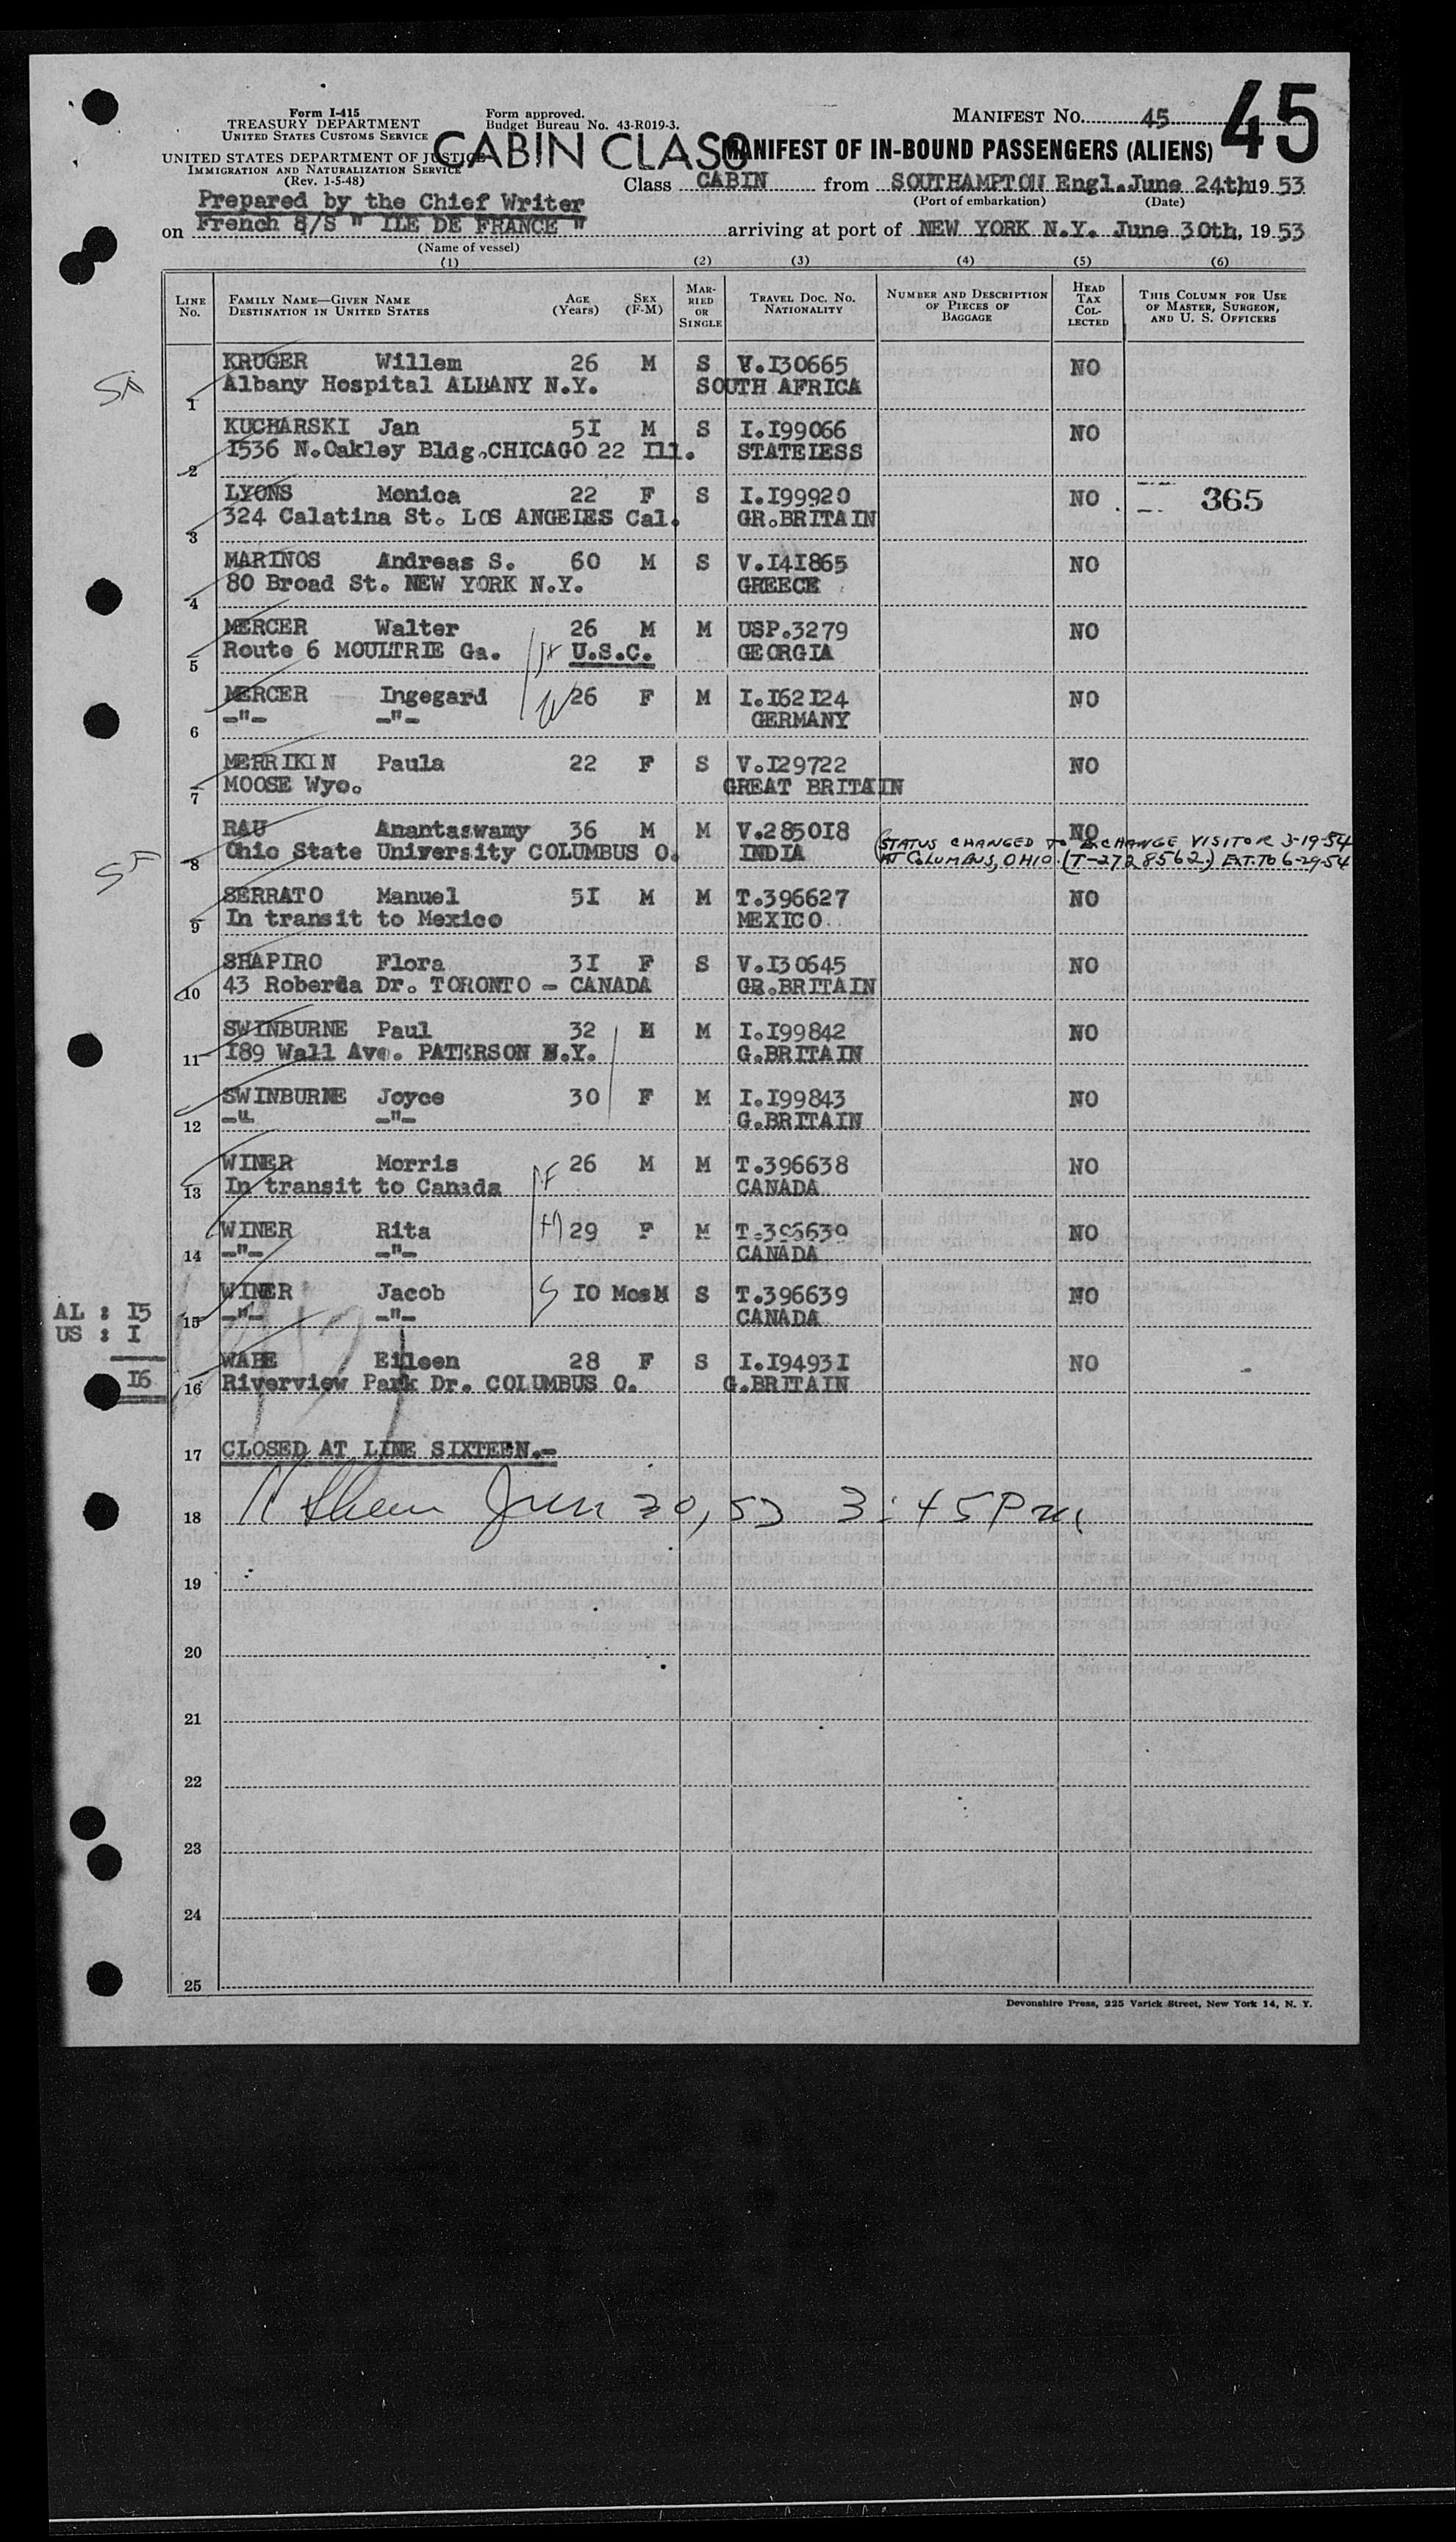 45
Form I-415
TREASURY DEPARTMENT
UNITED STATES CUSTOMS SERVICE
Form approved.
Budget Bureau No. 43-R019-3.
MANIFEST NO. 45
CABIN CLASS
MANIFEST OF IN-BOUND PASSENGERS (ALIENS)
UNITED STATES DEPARTMENT OF JUSTICE
IMMIGRATION AND NATURALIZATION SERVICE
(Rev. 1-5-48)
Class CABIN from SOUTHAMPTON Engl. June 24th 1953
(Port of embarkation) (Date)
Prepared by the Chief Writer
on French S/S " ILE DE FRANCE " arriving at port of NEW YORK N.Y. June 30th, 1953
(Name of vessel)
(1) (2) (3) (4) (5) (6)
LINE NO. FAMILY NAME—GIVEN NAME DESTINATION IN UNITED STATES AGE (Years) SEX (F-M) MARRIED OR SINGLE TRAVEL DOC. NO. NATIONALITY NUMBER AND DESCRIPTION OF PIECES OF BAGGAGE HEAD TAX COLLECTED THIS COLUMN FOR USE OF MASTER, SURGEON, AND U. S. OFFICERS
KRUGER Willem 26 M S V.I30665 NO
1 Albany Hospital ALBANY N.Y. SOUTH AFRICA
KUCHARSKI Jan 5I M S I.I99066 NO
2 I536 N.Oakley Bldg.CHICAGO 22 Ill. STATELESS
LYONS Monica 22 F S I.I99920 NO 365
3 324 Calatina St. LOS ANGELES Cal. GR.BRITAIN
MARINOS Andreas S. 60 M S V.I4I865 NO
4 80 Broad St. NEW YORK N.Y. GREECE
MERCER Walter 26 M M USP.3279 NO
5 Route 6 MOULTRIE Ga. U.S.C. GEORGIA
MERCER Ingegard 26 F M I.I62I24 NO
6 -"- -"- GERMANY
MERRIKIN Paula 22 F S V.I29722 NO
7 MOOSE Wyo. GREAT BRITAIN
RAU Anantaswamy 36 M M V.2850I8 NO
STATUS CHANGED TO EXCHANGE VISITOR 3-19-54
8 Ohio State University COLUMBUS O. INDIA AT COLUMBUS, OHIO. (T-2728562) EXT. TO 6-29-54
SERRATO Manuel 5I M M T.396627 NO
9 In transit to Mexico MEXICO
SHAPIRO Flora 3I F S V.I30645 NO
10 43 Roberta Dr. TORONTO - CANADA GR.BRITAIN
SWINBURNE Paul 32 M M I.I99842 NO
11 I89 Wall Ave. PATERSON N.Y. G.BRITAIN
SWINBURNE Joyce 30 F M I.I99843 NO
12 -"- -"- G.BRITAIN
WINER Morris 26 M M T.396638 NO
13 In transit to Canada CANADA
WINER Rita 29 F M T.396639 NO
14 -"- -"- CANADA
WINER Jacob IO Mos M S T.396639 NO
15 -"- -"- CANADA
AL : I5
US : I
I6
WABE Eileen 28 F S I.I9493I NO
16 Riverview Park Dr. COLUMBUS O. G.BRITAIN
17 CLOSED AT LINE SIXTEEN.-
18 June 30, 53 3:45 Pm
19
20
21
22
23
24
25
Devonshire Press, 225 Varick Street, New York 14, N. Y.